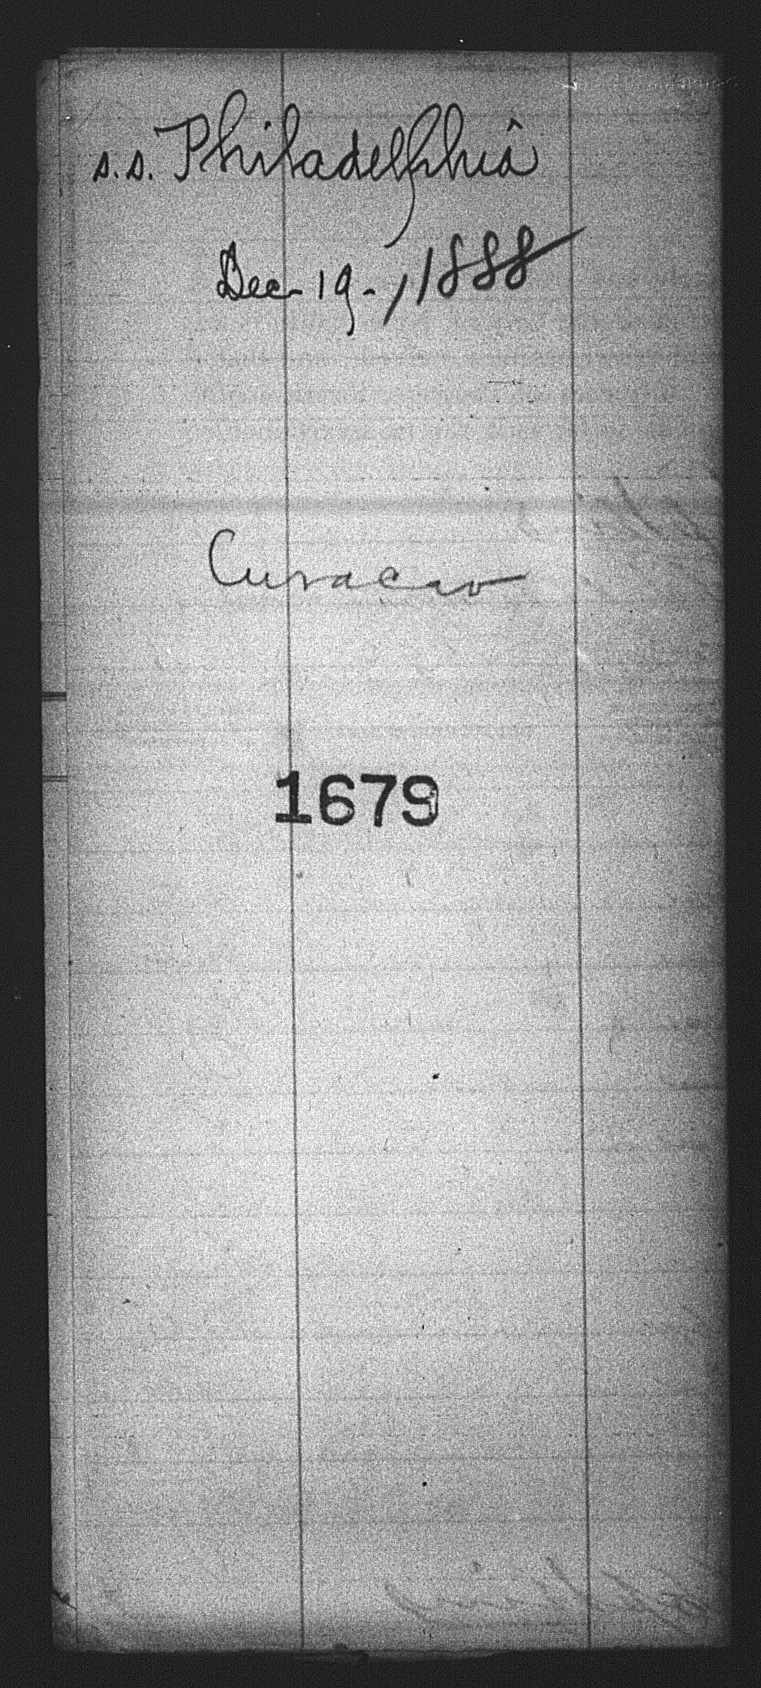 s.s. Philadelphia
Dec. 19-, 1888
Curacao
1679